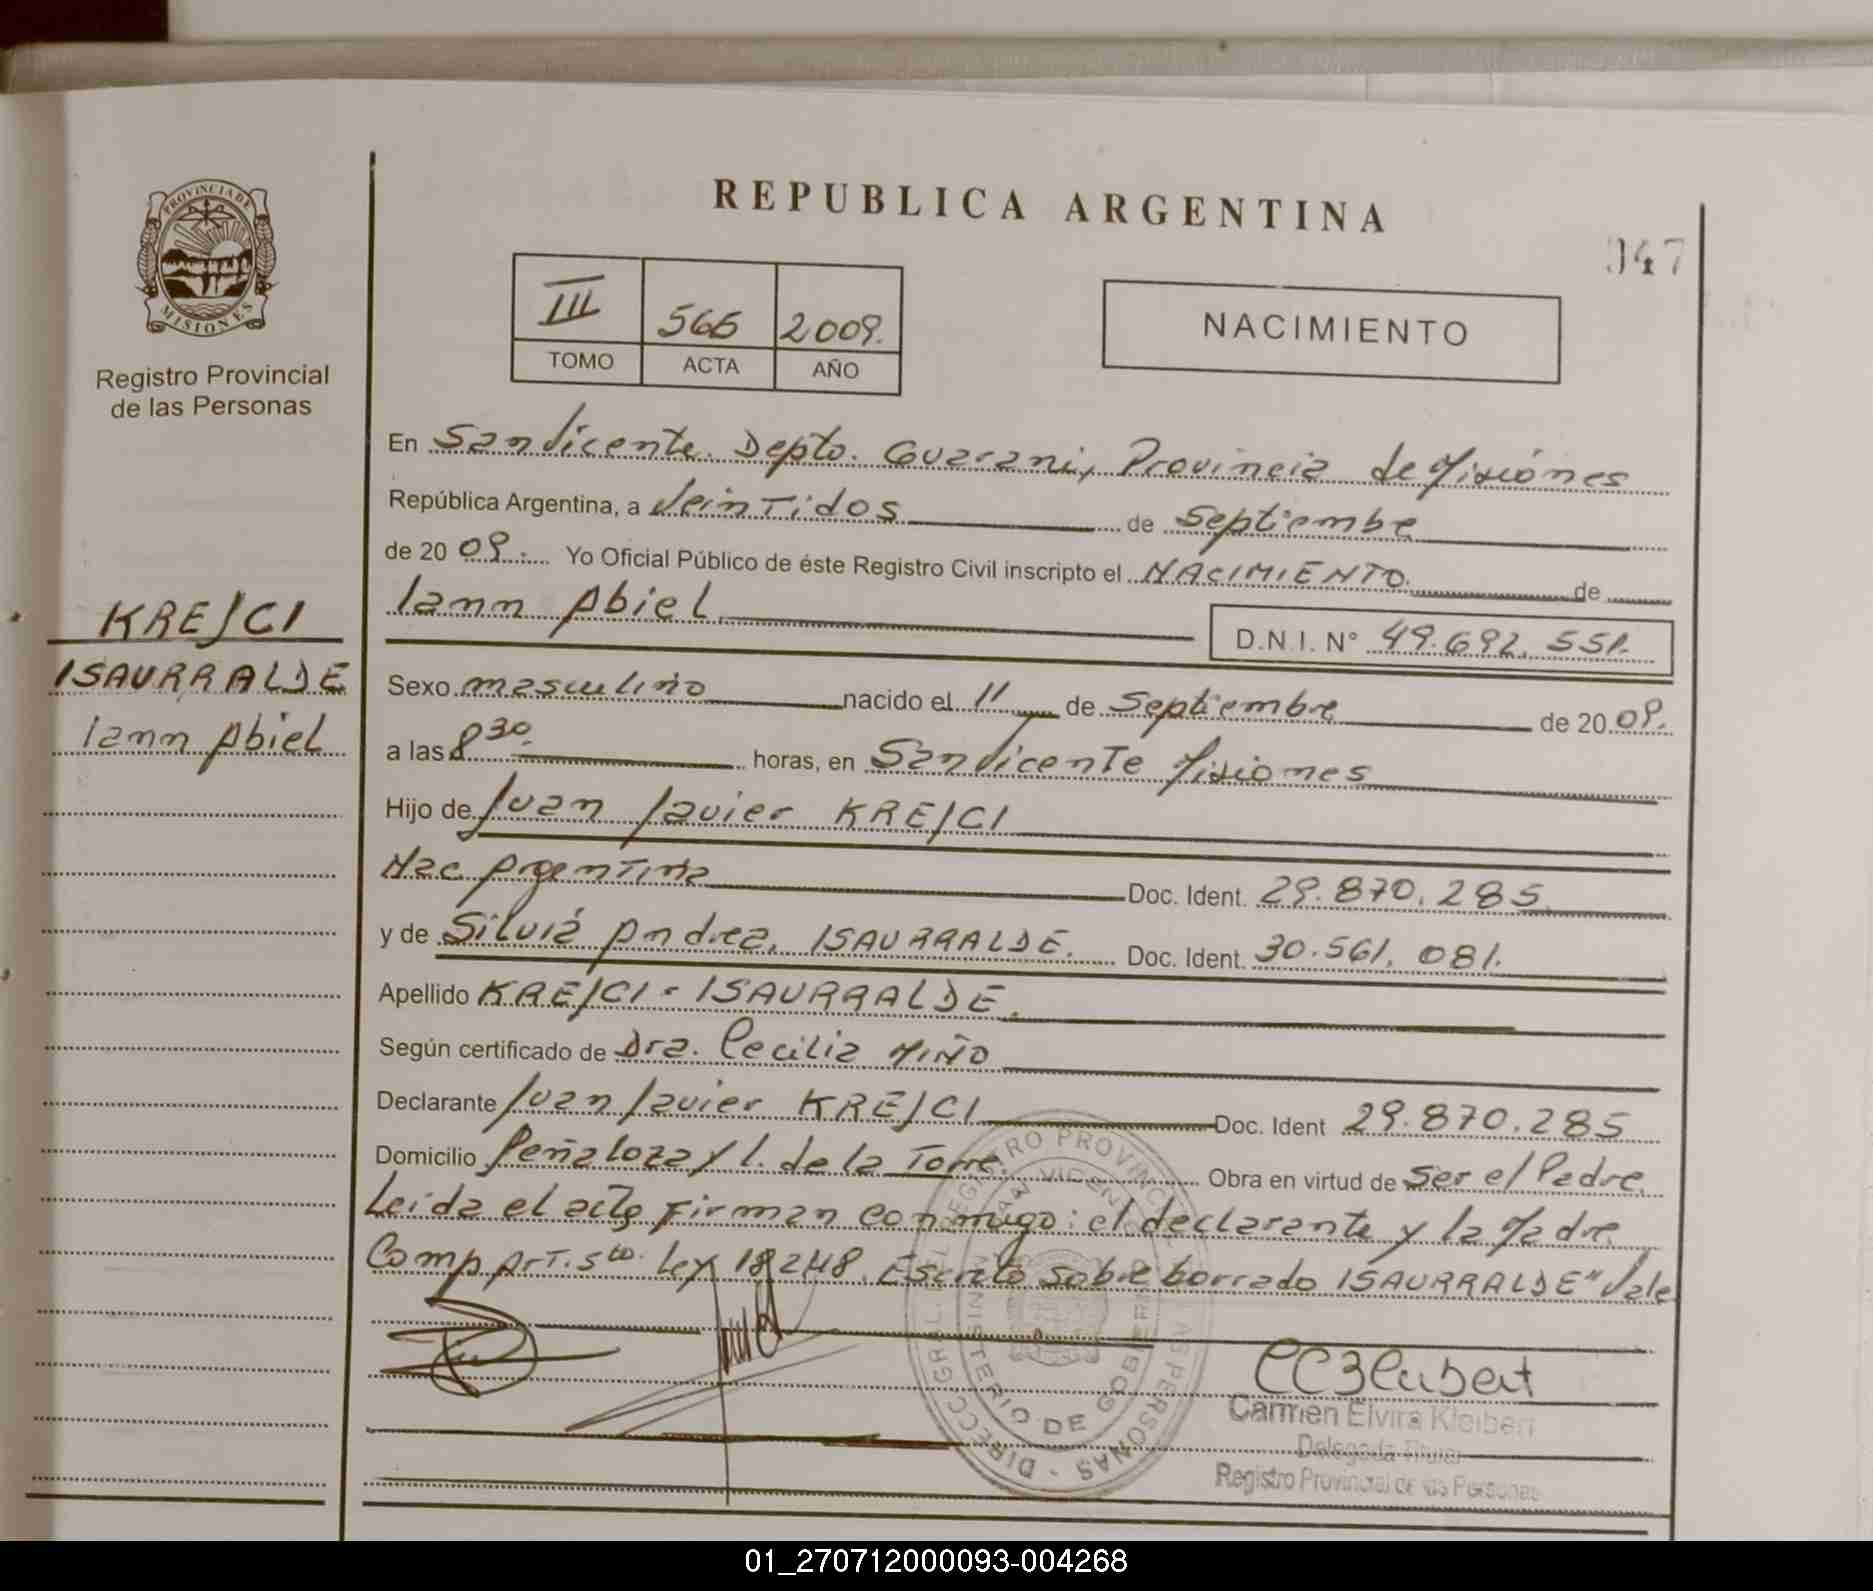 REPUBLICA ARGENTINA
347
PROVINCIA DE
MISIONES
Registro Provincial
de las Personas
III 566 2009.
TOMO ACTA AÑO
NACIMIENTO
En San Vicente. Depto. Guarani, Provincia de Misiónes
República Argentina, a Veintidos de Septiembre
de 20 09. Yo Oficial Público de éste Registro Civil inscripto el NACIMIENTO. de
Iann Abiel
D.N.I. N° 49.692.551.
KREJCI
ISAURRALDE
Iann Abiel
Sexo masculino nacido el 11 de Septiembre de 20 09.
a las 8 30. horas, en San Vicente Misiones
Hijo de Juan Javier KREJCI
Nac Argentina Doc. Ident. 29.870.285.
y de Silvia Andrea. ISAURRALDE. Doc. Ident. 30.561.081.
Apellido KREJCI - ISAURRALDE.
Según certificado de Dra. Cecilia MIÑO
Declarante Juan Javier KREJCI Doc. Ident 29.870.285
Domicilio Peñaloza y L. de la Torre. Obra en virtud de Ser el Padre.
Leída el acta Firman conmigo: el declarante y la Madre.
Comp Art. 5to. Ley 18248. Escrito sobre borrado ISAURRALDE" Vale
DIRECC GRAL DEL REGISTRO PROVINCIAL DE LAS PERSONAS
SAN VICENTE
MINISTERIO DE GOBIERNO
Carmen Elvira Kleibert
Delegada Titular
Registro Provincial de las Personas
01_270712000093-004268